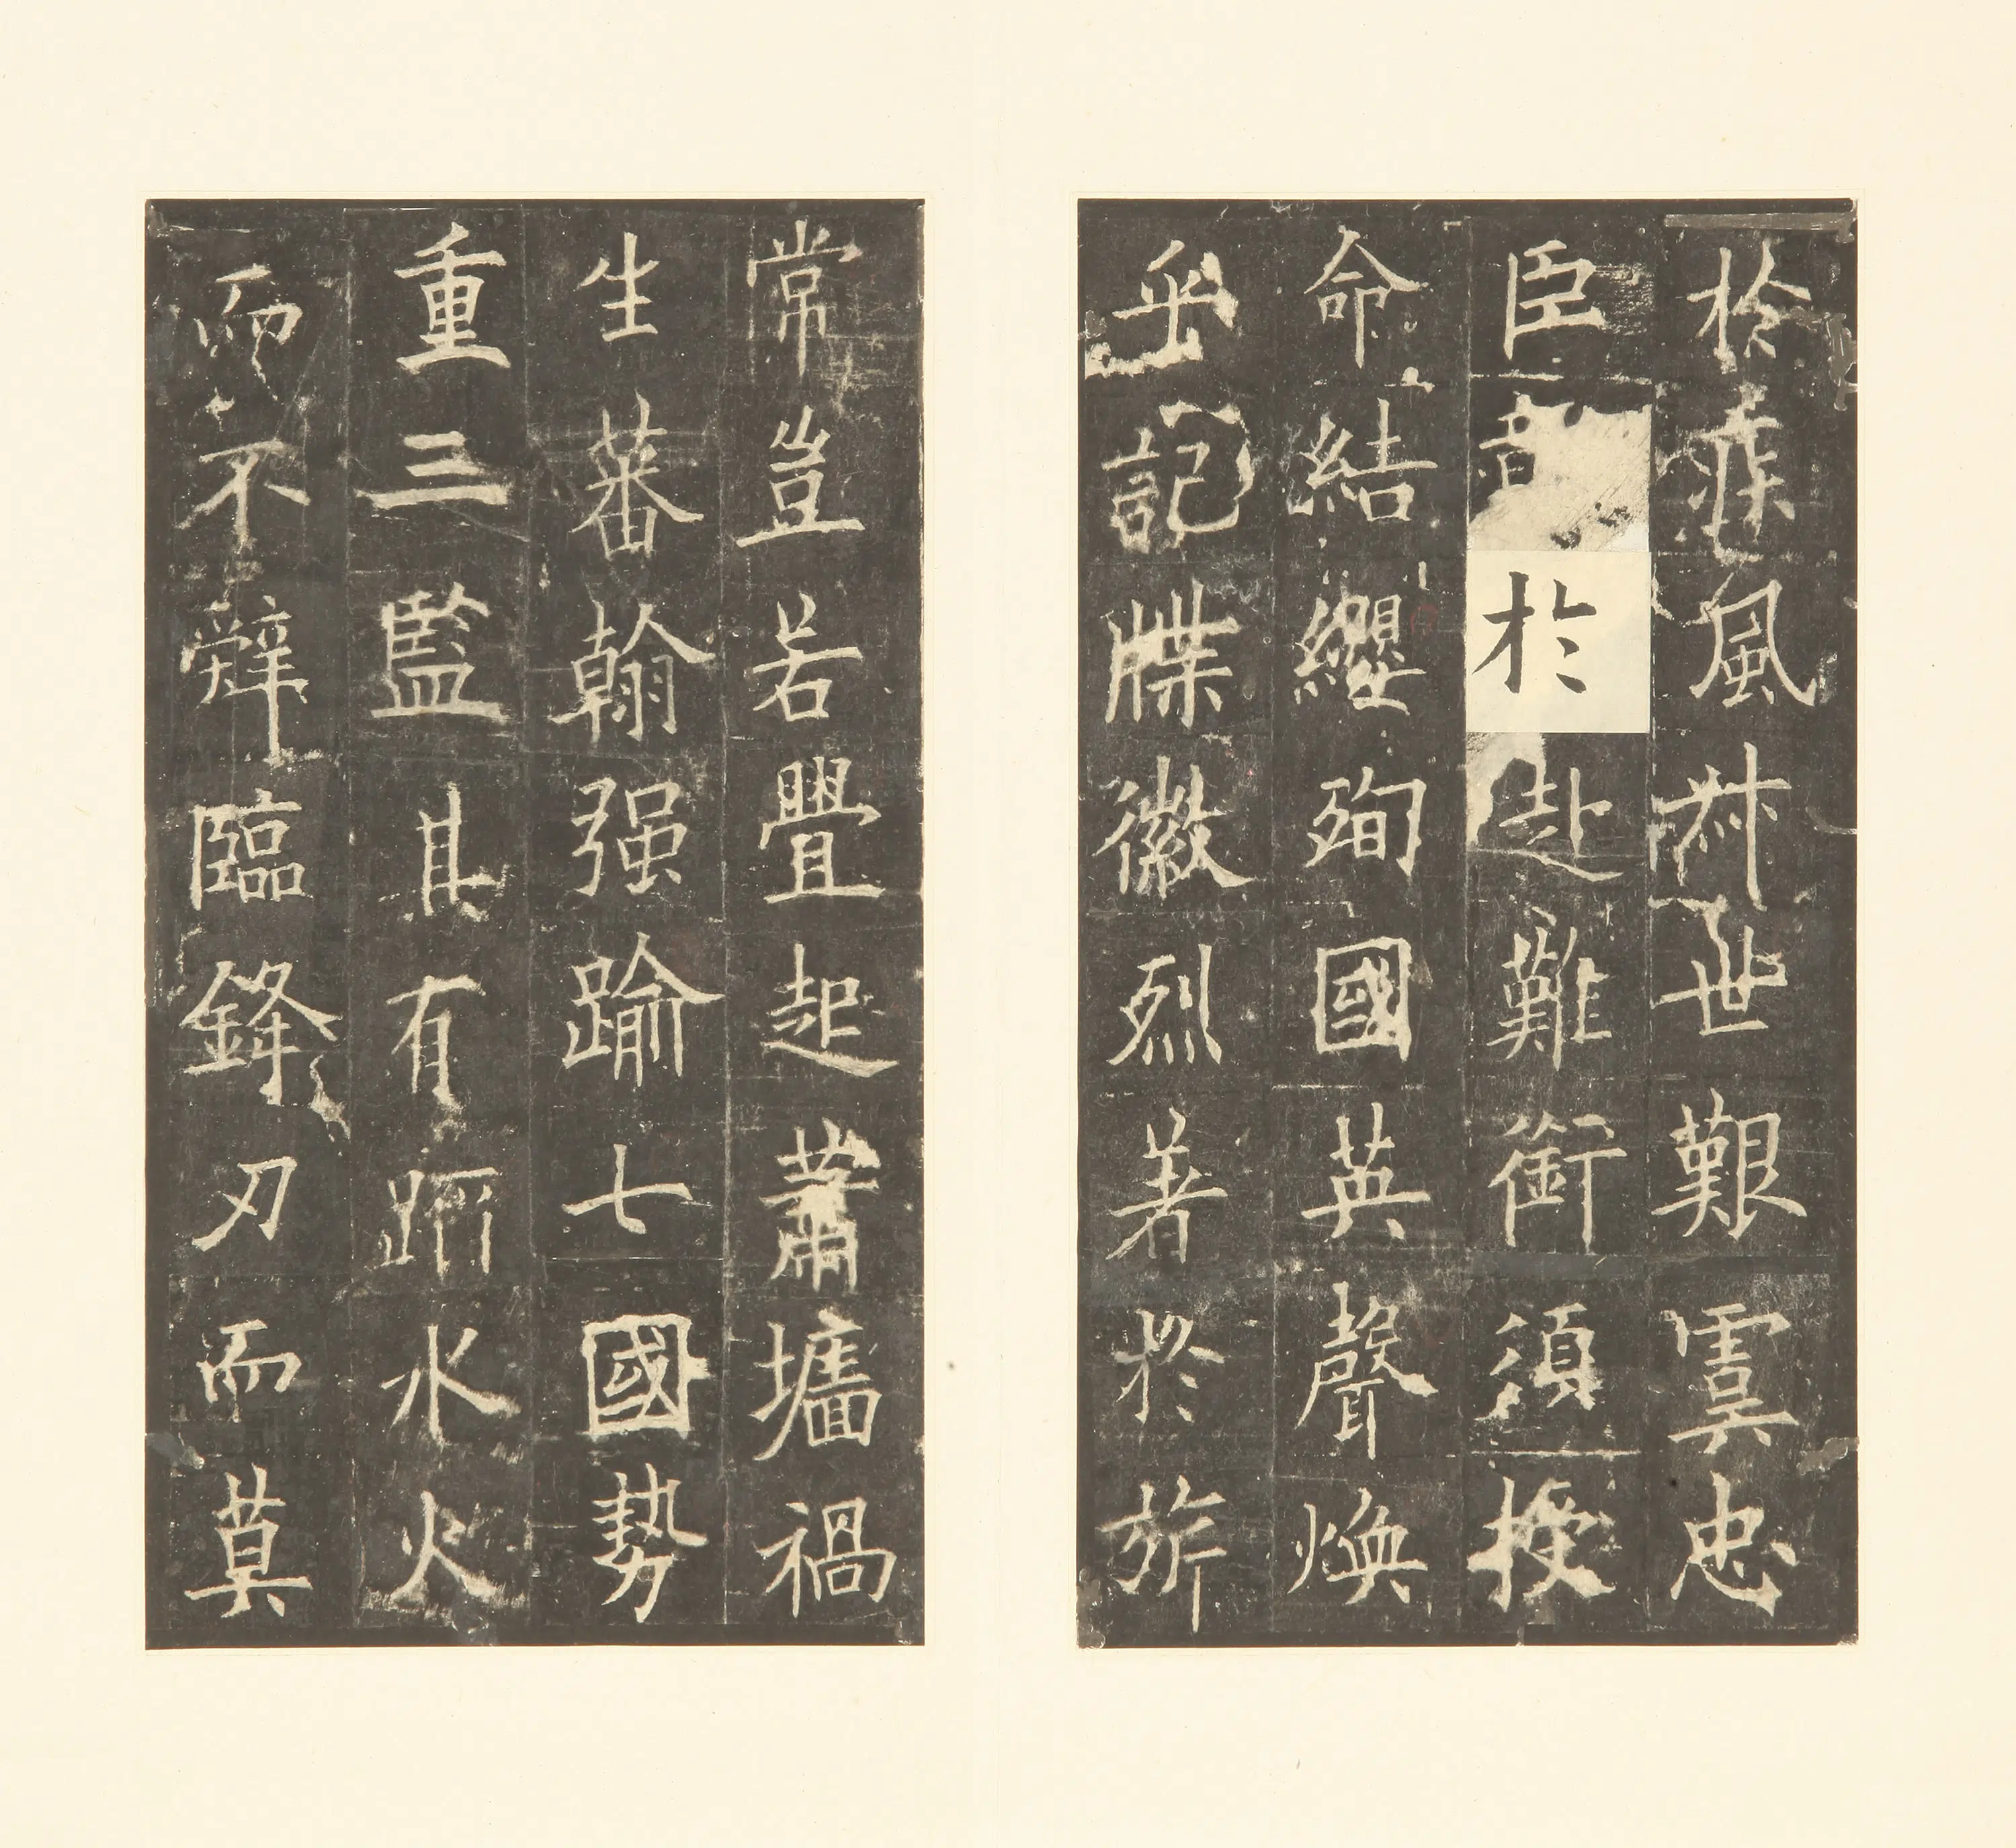 於疾風叔世艱虞忠
臣於赴難銜須授
命結纓殉國英聲煥
乎記牒徽烈著於旂
常豈若釁起蕭墻禍
生蕃翰强踰七國勢
重三監其有蹈水火
而不辭臨鋒刃而莫